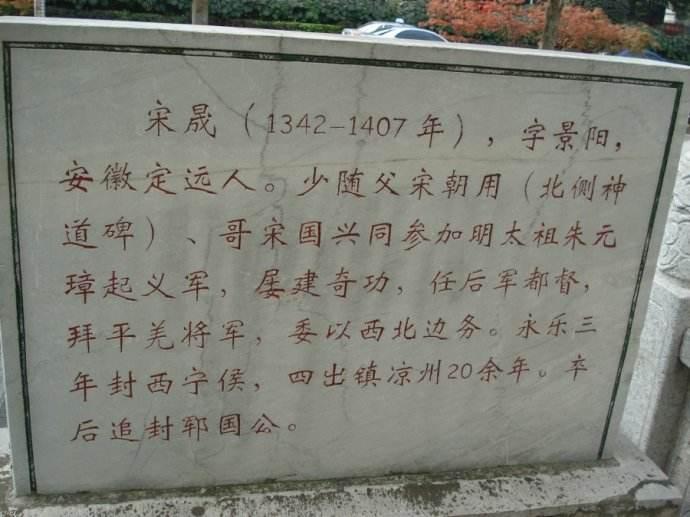 宋晟（1342-1407年），字景阳，
安徽定远人。少随父宋朝用（北侧神
道碑）、哥宋国兴同参加明太祖朱元
璋起义军，屡建奇功，任后军都督，
拜平羌将军，委以西北边务。永乐三
年封西宁侯，四出镇凉州20余年。卒
后追封郓国公。